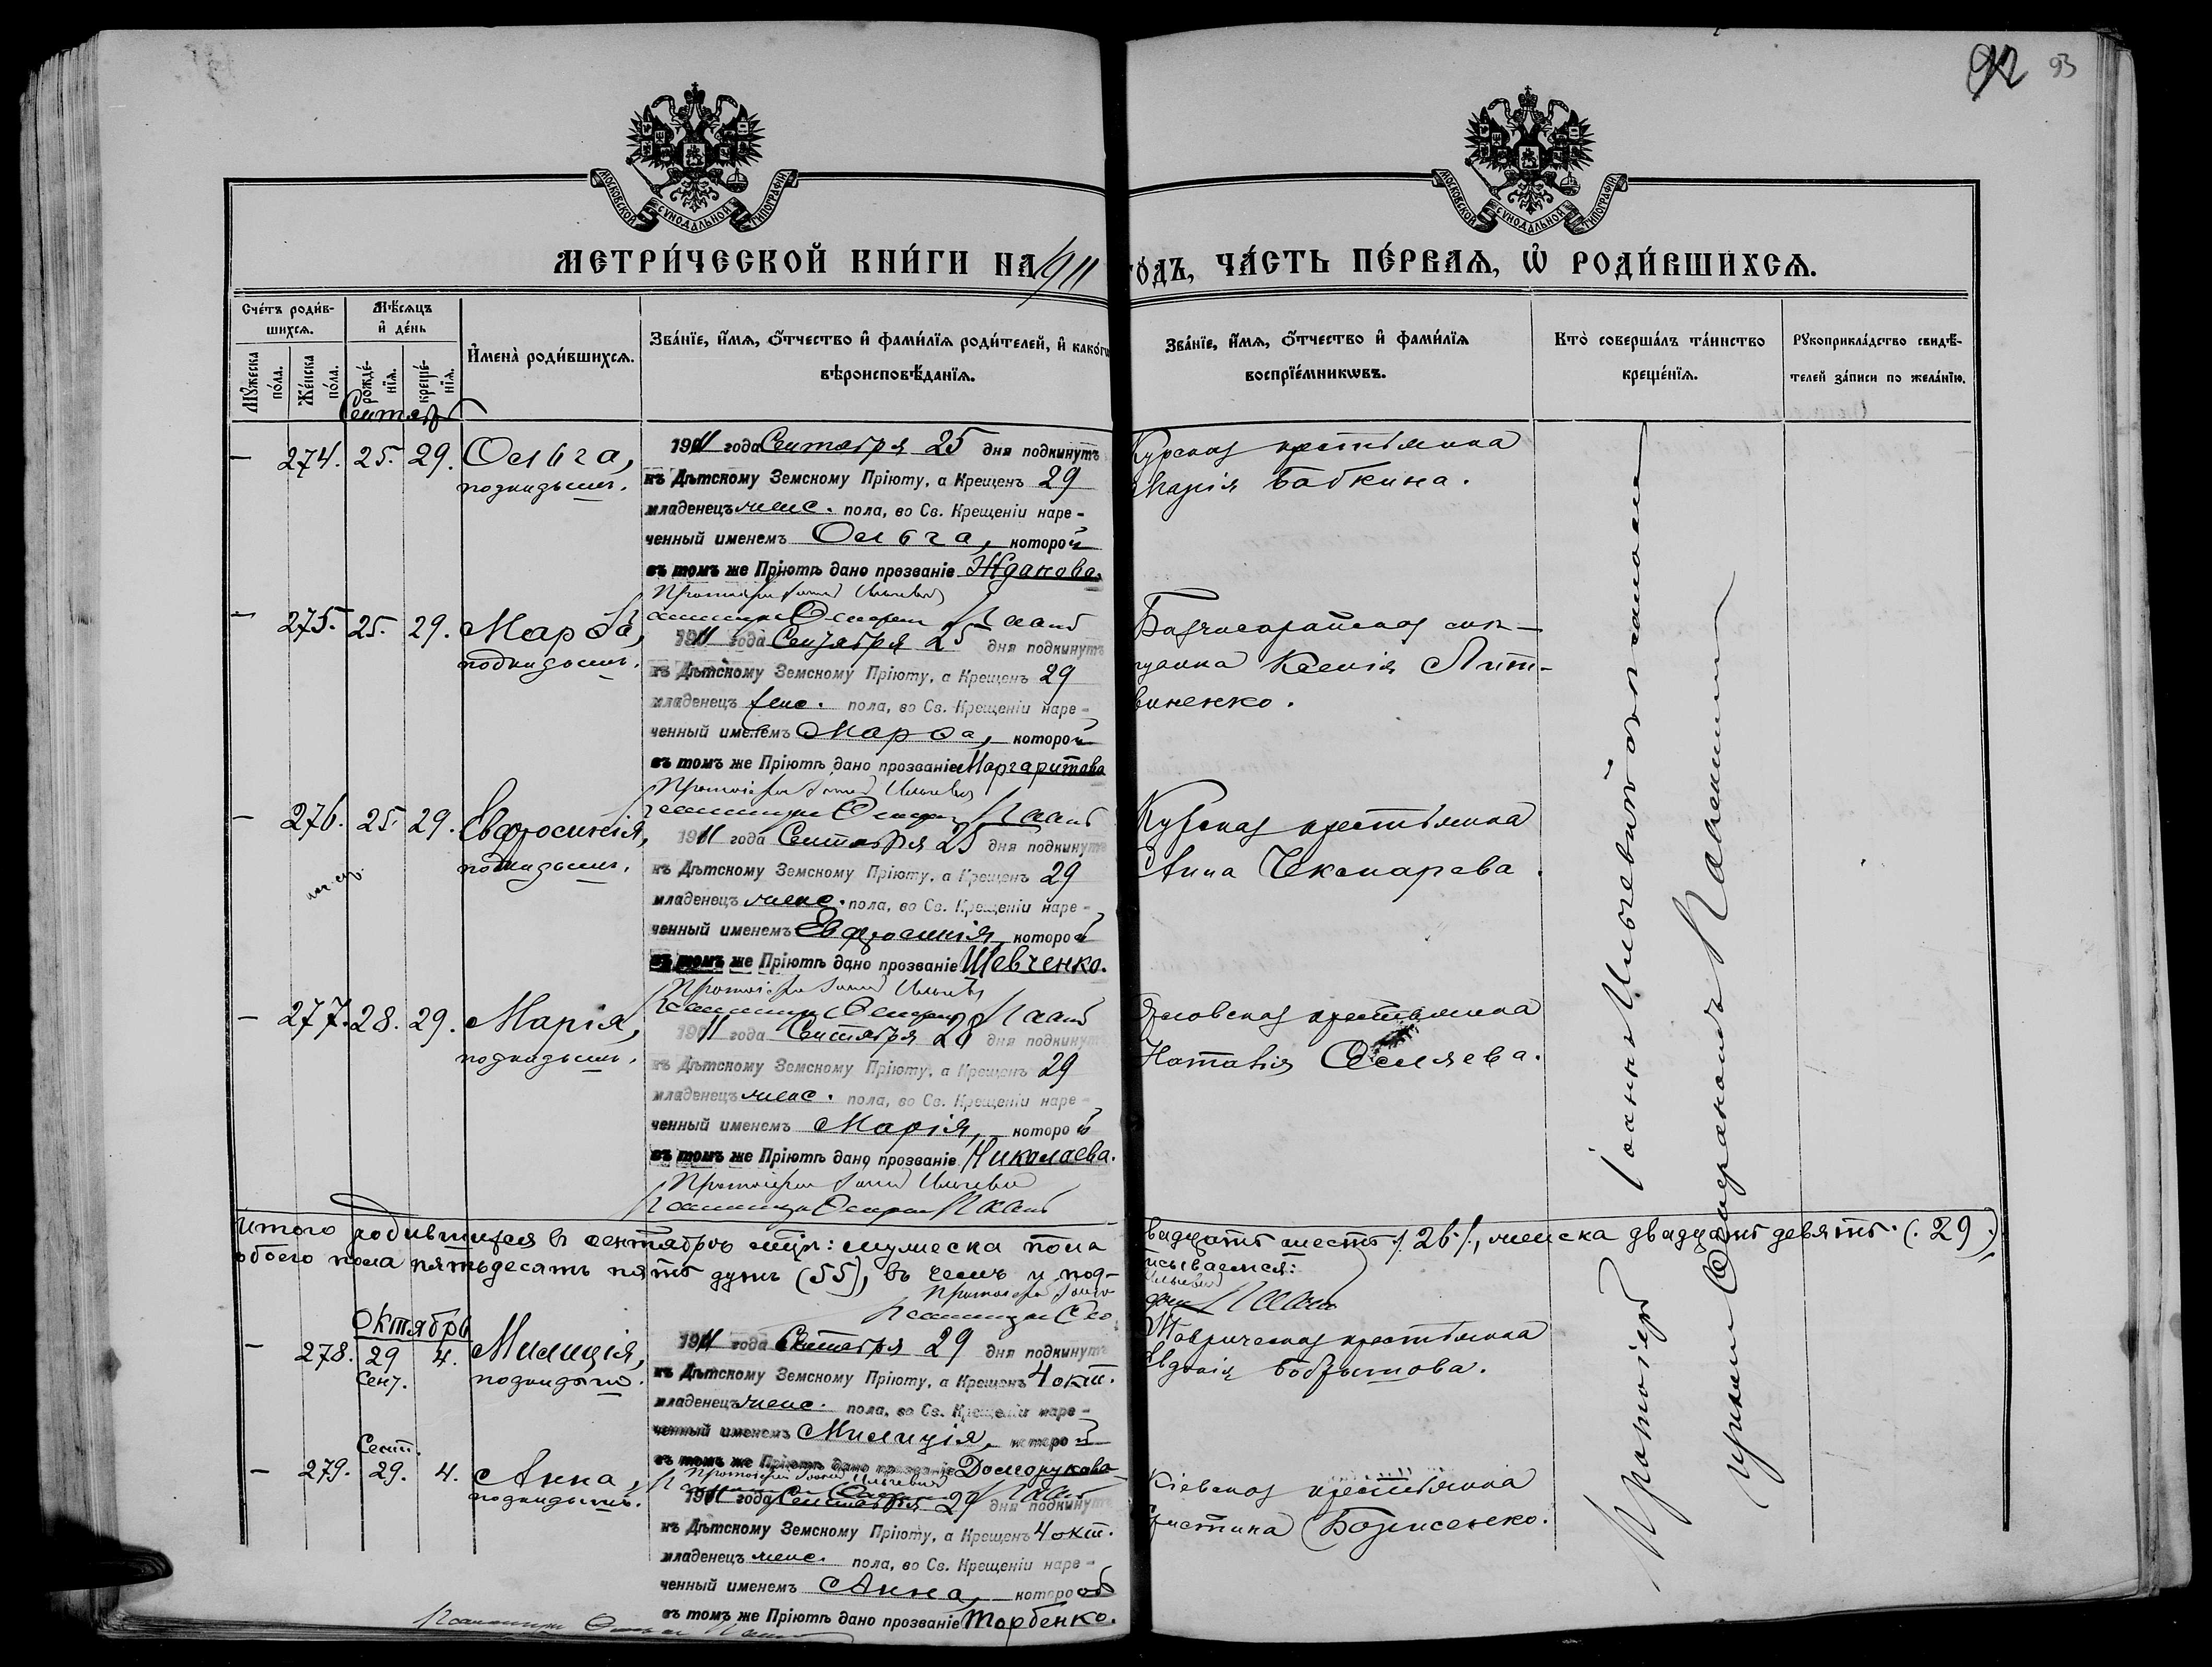 92 93
МОСКОВСКОЙ СѴНОДАЛЬНОЙ ТИПОГРАФІИ
МОСКОВСКОЙ СѴНОДАЛЬНОЙ ТИПОГРАФІИ
МЕТРИ́ЧЕСКОЙ КНИ́ГИ НА 1911 ГО́ДЪ, ЧА́СТЬ ПЕ́РВАѦ, Ѿ РОДИ́ВШИХСѦ.
Сче́тъ роди́в-
шихсѧ.
Мѣ́сѧцъ
и҆ де́нь
Мꙋ́жеска по́ла.
Же́нска по́ла.
рожде́-нїѧ.
креще́-нїѧ.
И҆мена̀ роди́вшихсѧ.
Зва́нїе, и҆́мѧ, ѻ҆́тчество и҆ фами́лїѧ роди́телей, и҆ како́гѡ
вѣроисповѣ́данїѧ.
Зва́нїе, и҆́мѧ, ѻ҆́тчество и҆ фами́лїѧ
воспрїе́мникѡвъ.
Кто̀ соверша́лъ та́инство
креще́нїѧ.
Рꙋкоприкла́дство свидѣ́-
телей за́писи по жела́нїю.
Сентябрь
— 274. 25. 29. Ольга,
подкидышъ.
1911 года Сентября 25 дня подкинутъ
къ Дѣтскому Земскому Пріюту, а Крещенъ 29
младенецъ женс. пола, во Св. Крещеніи наре-
ченный именемъ Ольга, которой
въ томъ же Пріютѣ дано прозваніе Жданова.
Курская крестьянка
Марія Бабкина.
— 275. 25. 29. Марѳа,
подкидышъ.
1911 года Сентября 25 дня подкинутъ
къ Дѣтскому Земскому Пріюту, а Крещенъ 29
младенецъ женс. пола, во Св. Крещеніи наре-
ченный именемъ Марѳа, которой
въ томъ же Пріютѣ дано прозваніе Маргаритова
Ксенія Лит-
виненко.
— 276. 25. 29. Евфросинія,
подкидышъ.
1911 года Сентября 25 дня подкинутъ
къ Дѣтскому Земскому Пріюту, а Крещенъ 29
младенецъ женс. пола, во Св. Крещеніи наре-
ченный именемъ Евфросинія, которой
въ томъ же Пріютѣ дано прозваніе Шевченко.
Курская крестьянка
Анна Чекмарева.
— 277. 28. 29. Марія,
подкидышъ.
1911 года Сентября 28 дня подкинутъ
къ Дѣтскому Земскому Пріюту, а Крещенъ 29
младенецъ женс. пола, во Св. Крещеніи наре-
ченный именемъ Марія, которой
въ томъ же Пріютѣ дано прозваніе Николаева.
Орловская крестьянка
Наталія
Итого родившихся въ сентябрѣ мцѣ: мужеска пола двадцать шесть (26), женска двадцать девять (29)
обоего пола пятьдесятъ пять душъ (55), въ чемъ и под-писываемся:
Октябрь
— 278. 29 Сент. 4. Милиція,
подкидышъ.
1911 года Сентября 29 дня подкинутъ
къ Дѣтскому Земскому Пріюту, а Крещенъ 4 окт.
младенецъ женс. пола, во Св. Крещеніи наре-
ченный именемъ Милиція, которой
въ томъ же Пріютѣ дано прозваніе Долгорукова
Таврическая крестьянка
Евдокія
— 279. Сент. 29. 4. Анна,
подкидышъ.
1911 года Сентября 29 дня подкинутъ
къ Дѣтскому Земскому Пріюту, а Крещенъ 4 окт.
младенецъ женс. пола, во Св. Крещеніи наре-
ченный именемъ Анна, которой
въ томъ же Пріютѣ дано прозваніе Торбенко.
Кіевская крестьянка
Христина Борисенко.
Протоіерей Іоаннъ Ильчевичъ съ псаломщи-